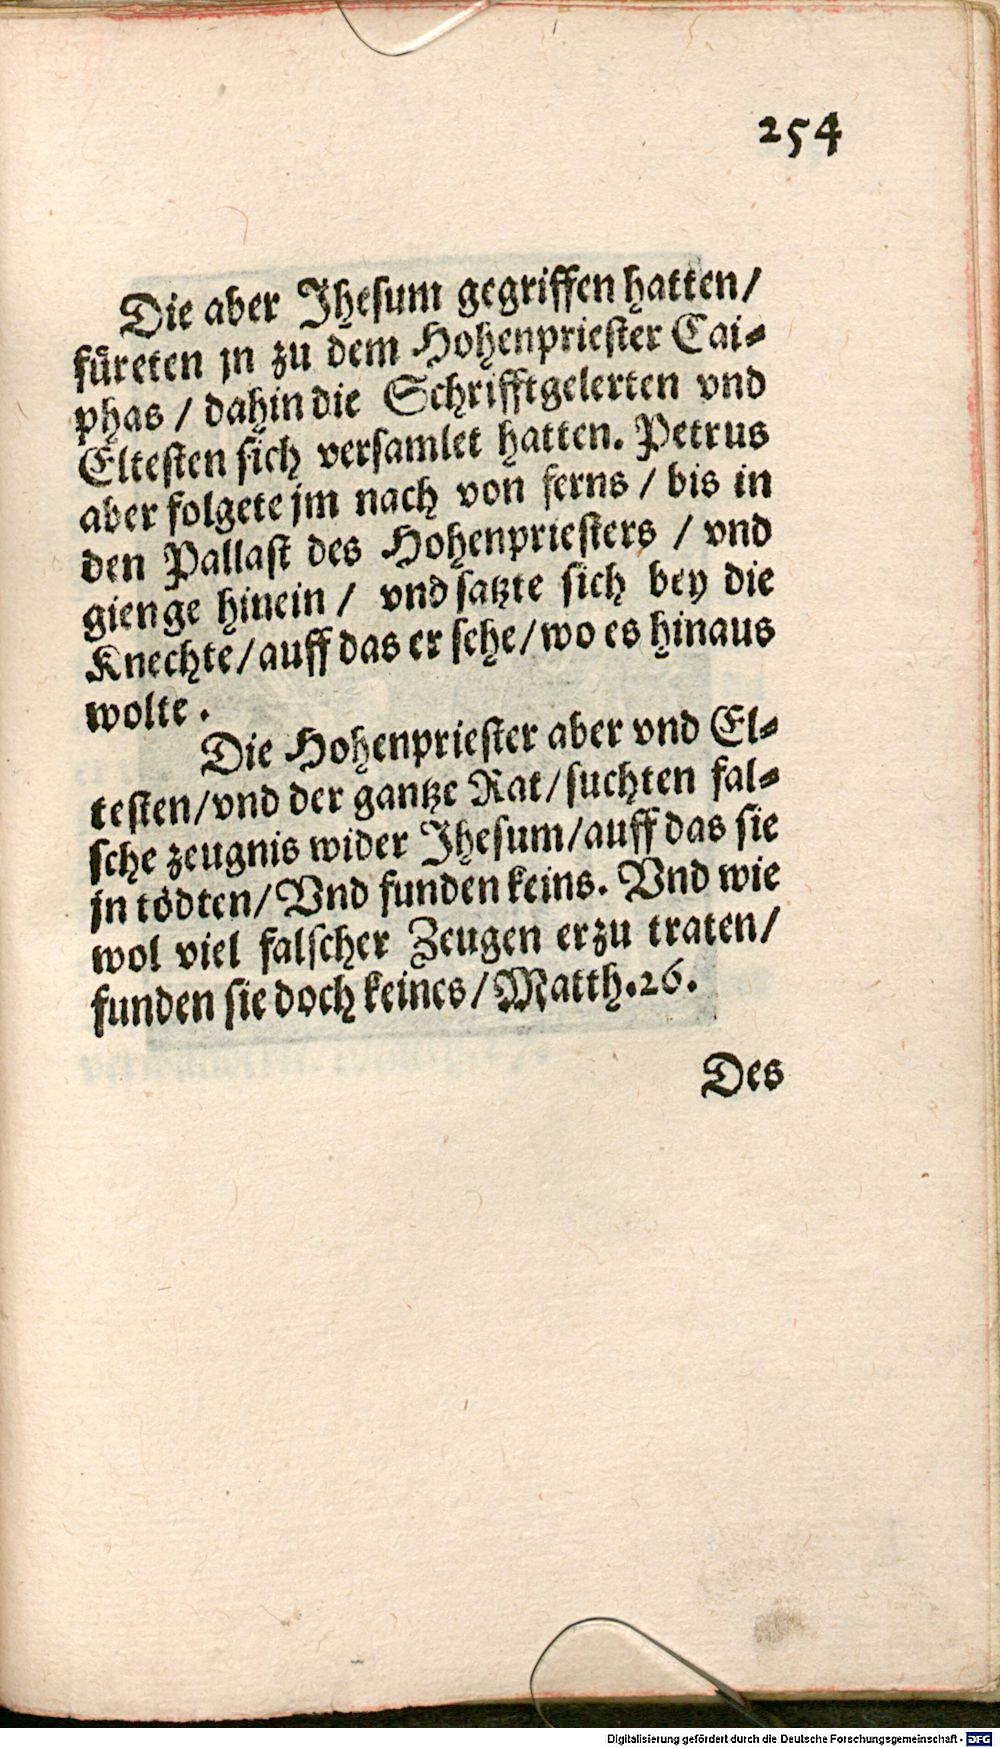 254
Die aber Jhesum gegriffen hatten/
fůreten jn zu dem Hohenpriester Cai⸗
phas / dahin die Schrifftgelerten vnd
Eltesten sich versamlet hatten. Petrus
aber folgete jm nach von ferns / bis in
den Pallast des Hohenpriesters / vnd
gienge hinein / vnd satzte sich bey die
Knechte/auff das er sehe/wo es hinaus
wolte .
Die Hohenpriester aber vnd El⸗
testen/vnd der gantze Rat/suchten fal⸗
sche zeugnis wider Jhesum/auff das sie
jn tödten/Vnd funden keins. Vnd wie
wol viel falscher Zeugen erzu traten/
funden sie doch keines/Matth.26.
Des
Digitalisierung gefördert durch die Deutsche Forschungsgemeinschaft - DFG